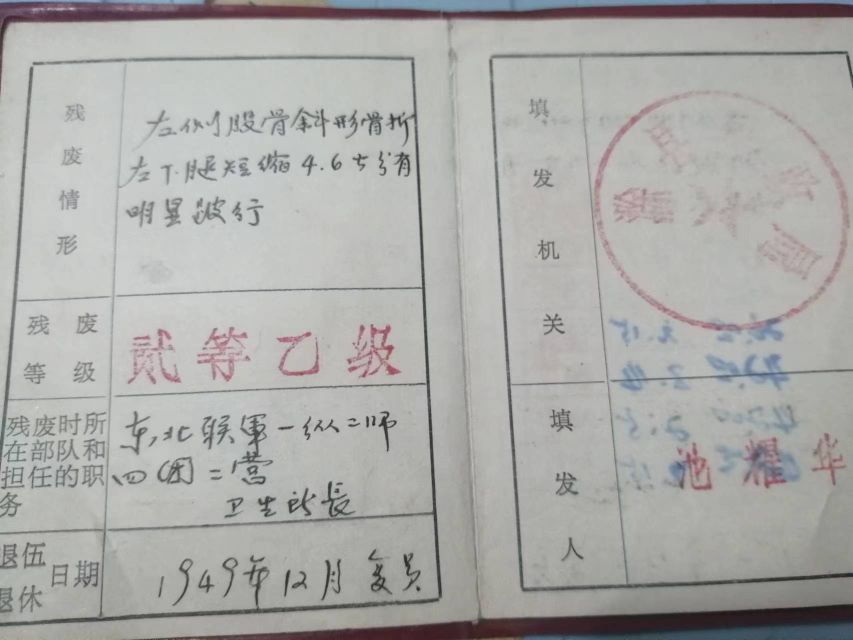 残废情形
左侧股骨斜形骨折
左下腿短缩4.6公分有
明显跛行
残废
等级
贰等乙级
残废时所
在部队和
担任的职
务
东北联軍一纵二师
四团二营
卫生所長
退伍
退休
日期
1949年12月复员
填发机关
填发人
池耀华